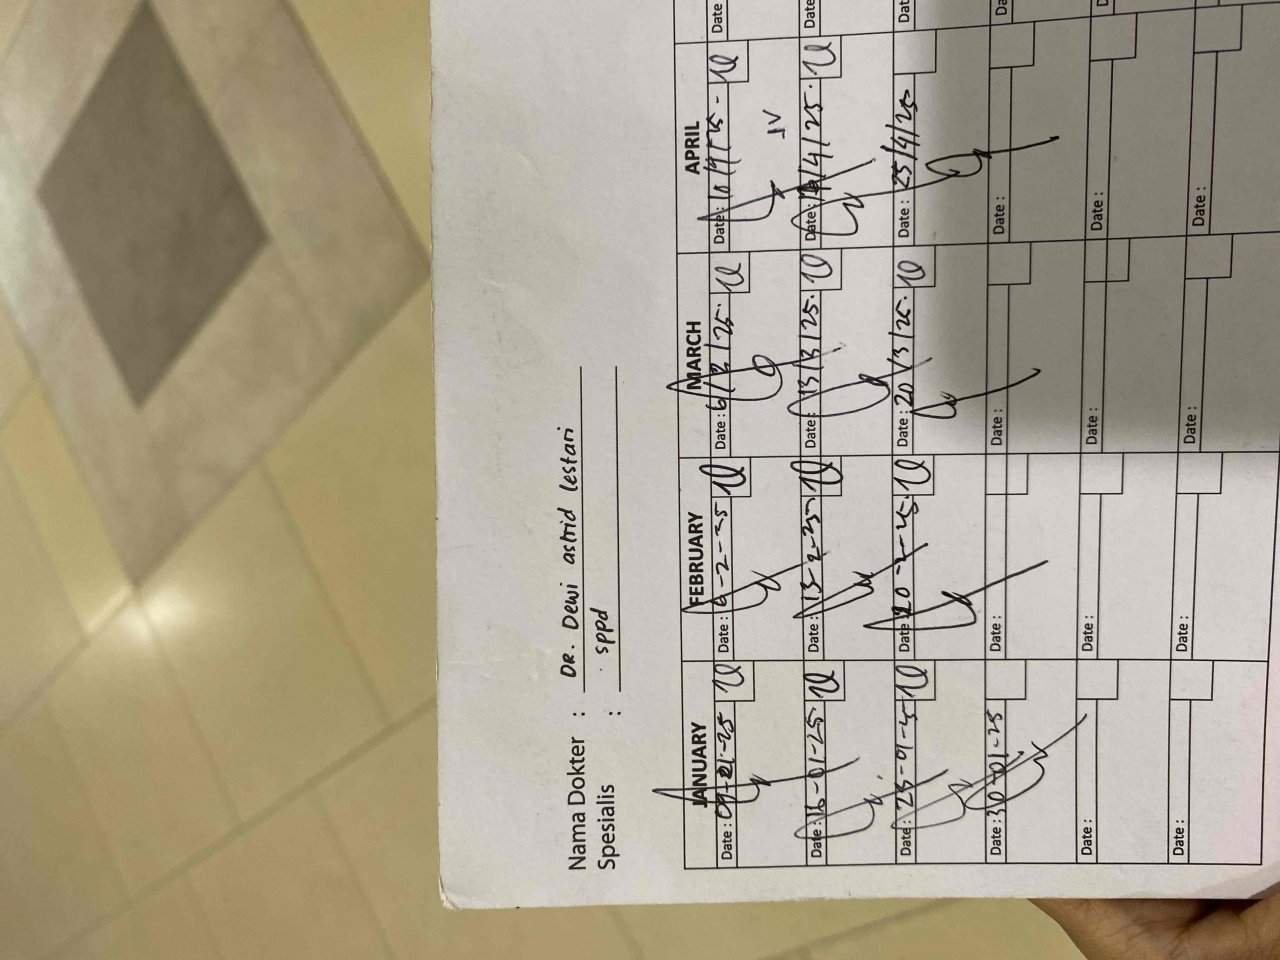 Nama Dokter : DR. Dewi astrid lestari
Spesialis : sppd
JANUARY FEBRUARY MARCH APRIL
Date : 09-01-25 Date : 6-2-25 Date : 6/3/25 Date : 10/4/25 Date
Date : 16-01-25 Date : 13-2-25 Date : 13/3/25 Date : /4/25 Date
Date : 23-01-25 Date : 20-2-25 Date : 20/3/25 Date : 25/4/25 Dat
Date : 30-01-25 Date : Date : Date : Da
Date : Date : Date : Date : D
Date : Date : Date : Date :